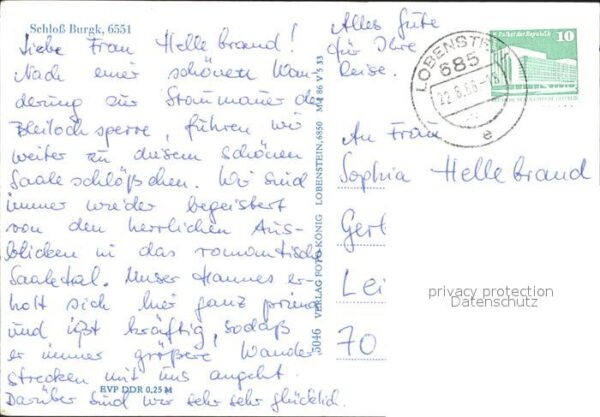 Schloß Burgk, 6551
Liebe Frau Hellebrand!
Nach einer schönen Wan-
derung zur Staumauer der
Bleilochsperre, führen wir
weiter zu diesem schönen
Saaleschlößchen. Wir sind
immer wieder begeistert
von den herrlichen Aus-
blicken in das romantische
Saaletal. Unser Hannes er-
holt sich hier ganz prima
und ißt kräftig, sodaß
er immer größere Wander
strecken mit uns angeht.
EVP DDR 0,25 M
Darüber sind wir sehr sehr glücklich.
Alles Gute
für Ihre
Reise.
5046 VERLAG FOTO-KÖNIG LOBENSTEIN, 6850 M 1 86 V 5 33
LOBENSTEIN
685
22.8.86-18
e
Palast der Republik 10
An Frau
Sophia Hellebrand
Gert
Lei
70
privacy protection
Datenschutz